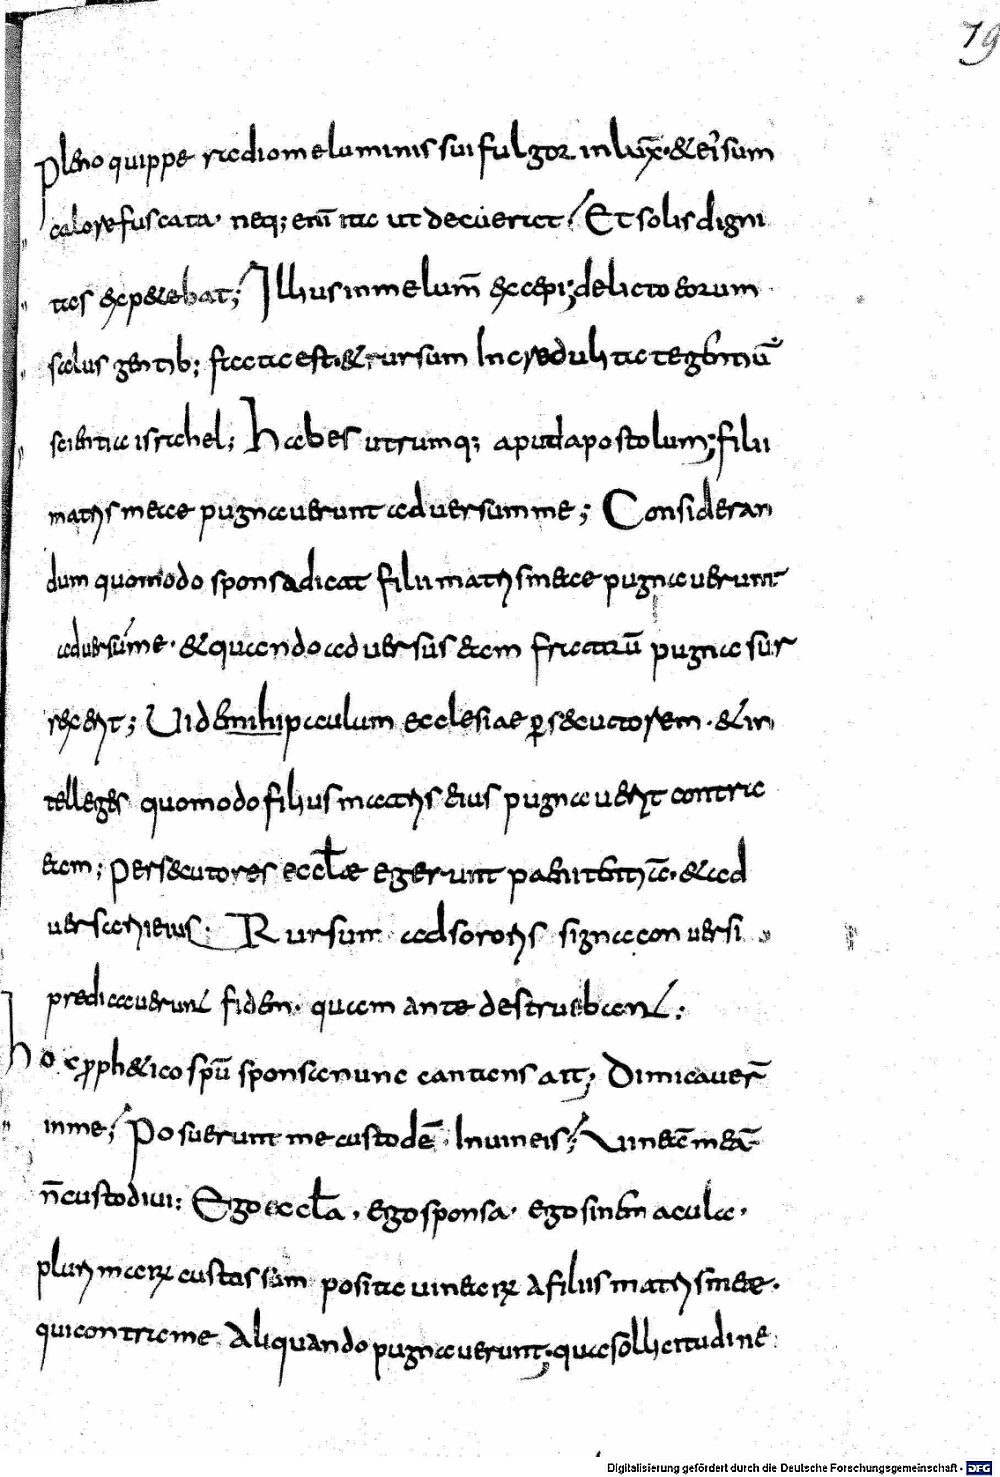 19
Pleno quippe radio me luminis sui fulgor inlux̄·&ei͛sum
calore fuscata· neq; eni͞ ita ut decuerat; Et solis digni
tas exp&ebat; Illius in me lum̄ excępi; delicto eorum
salus gentib; facta est·&rursum Incredulitate gentiū
scientia israhel; habes utrumq; apud apostolum; filii
matris meae pugnauerunt aduersum me; Consideran
dum quomodo sponsa dicat filii matris meae pugnauerunt
aduersum me· &quando aduersus eam fratrū pugna sur
rexerit; Uide mihi paulum ecclesiae ꝑsecutorem· &in
telleges quomodo filius matris eius pugnauerit contra
eam; persecutores eccƚae egerunt paenitentiā·&ad
uersarii eius· Rursum ad sororis signa conuersi
predicauerunt fidem· quam ante destruebant;
hoc ꝓph&ico spū sponsa nunc cantans ait; Dimicauer̄
in me; Posuerunt me custodē· In uineis; Uineā meā
n̄ custodiui; Ego eccƚa, ego sponsa· ego sine macula·
plurimarꝝ custos sum posita uinearꝝ a filiis matris meae·
qui contra me aliquando pugnauerunt; qua sollicitudine
Digitalisierung gefördert durch die Deutsche Forschungsgemeinschaft - DFG